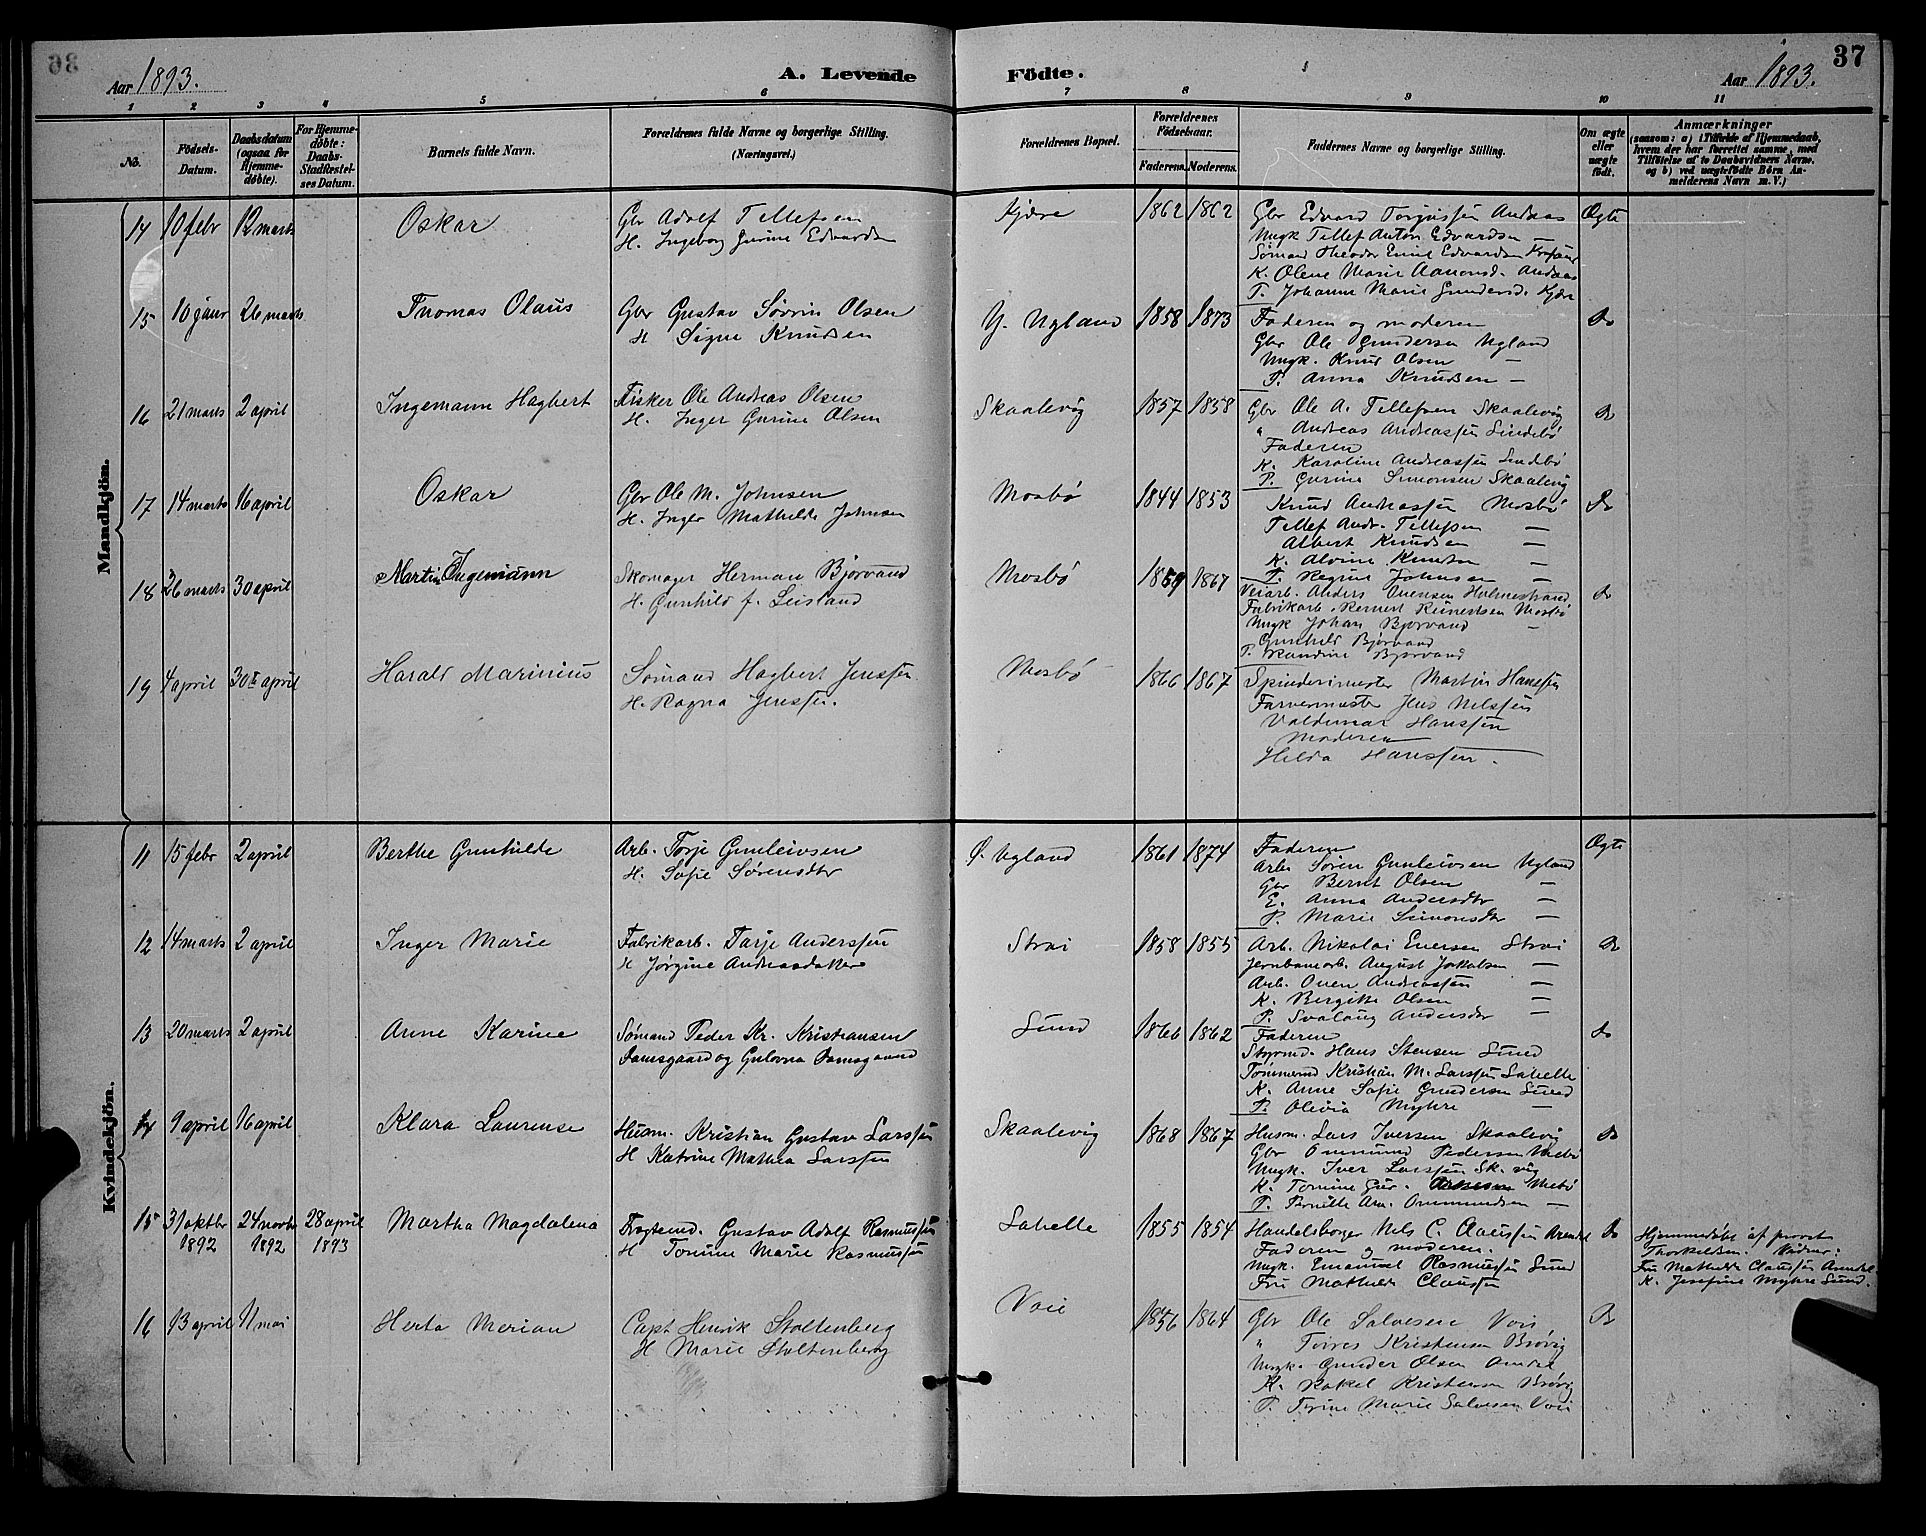 Aar 1893.
A. Levende Födte.
37
Aar 1893.
1 2 3 4 5 6 7 8 9 10 11
No.
Födsels-Datum.
Daabsdatum (ogsaa for Hjemme-døbte).
For Hjemme-døbte: Daabs-Stadfæstelses Datum.
Barnets fulde Navn.
Forældrenes fulde Navne og borgerlige Stilling. (Næringsvei.)
Forældrenes Bopæl.
Forældrenes Födselsaar.
Faderens. Moderens.
Faddernes Navne og borgerlige Stilling.
Om ægte eller uægte födt.
Anmærkninger
(saasom: a) i Tilfælde af Hjemmedaab, hvem der har forrettet samme, med Tilföielse af to Daabsvidners Navne. og b) ved uægtefödte Börn Anmelderens Navn m. V.)
Mandkjön.
14 10 febr 12 marts Oskar
Gbr Adolf Tellefsen
H. Ingeborg Gurine Edvardsen
Kjære 1862 1862
Gbr Edvard Torgussen Andaas
Ungk Tellef Anton Edvardsen —
Sømand Theodor Emil Edvardsen
K. Olene Marie Aanonsd. Andaas
P. Johanne Marie Gundersd. Kjære
Ægte
15 10 januar 26 marts Thomas Olaus
Gbr Gustav Sørvin Olsen
H Signe Knudsen
Y. Ugland 1858 1873
Faderen og moderen
Gbr Ole Gundersen Ugland
Ungk. Knud Olsen —
P. Anna Knudsen —
do
16 21 marts 2 april Ingemann Hagbert
Fisker Ole Andreas Olsen
H. Inger Gurine Olsen
Skaalevig 1857 1858
Gbr Ole A. Tellefsen Skaalevig
" Andreas Andreassen Lindebø
Faderen
K. Karoline Andreassen Lindebø
P. Gurine Simonsen Skaalevig
do
17 14 marts 16 april Oskar
Gbr Ole M. Johnsen
H. Inger Mathilde Johnsen
Mosbø 1844 1853
Knud Andreassen Mosbø
Tellef Andr. Tellefsen —
Albert Knudsen —
K. Alvine Knudsen —
P. Regine Johnsen —
do
18 26 marts 30 april Martin Ingemann
Skomager Herman Bjørvand
H. Gunhild f. Leisland
Mosbø 1859 1867
Veiarb. Anders Evensen Holmestrand
Fabrikarb. Reinert Reinertsen Mosbø
Ungk Johan Bjørvand —
Gunhild Bjørvand
P. Randine Bjørvand
do
19 4 april 30 april Harald Marinius
Sømand Hagbert Jenssen
H. Ragna Jenssen.
Mosbø 1866 1867
Spinderimester Martin Hanssen
Farvermester Jens Nilssen
Valdemar Hanssen
Moderen
Hilda Hanssen.
Kvindekjön.
11 15 febr 2 april Berthe Gunhilde
Arb. Torje Gunleivsen
H. Sofie Sørensdtr
Ø. Ugland 1861 1874
Faderen
Arb. Søren Gunleivsen Ugland
Gbr Bernt Olsen —
E. Anna Andersdtr —
P. Marie Simonsdtr —
Ægte
12 14 marts 2 april Inger Marie
Fabrikarb. Tarje Anderssen
H Jørgine Andreasdatter
Strai 1858 1855
Arb. Nikolai Evensen Strai
Jernbanearb. August Jakobsen —
Arb. Oven Andreassen —
K. Bergitte Olsen —
P. Svalaug Andersdtr —
do
13 20 marts 2 april Anne Karine
Sømand Peder Kr. Kristiansen
Samsgaard og Gulovna Samsgaard
Sund 1866 1862
Faderen
Styrmd. Hans Stensen Sund
Tømmermd Kristian M. Larssen Labelle
K. Anne Sofie Gundersen Sund
P. Olivia Myhre —
do
14 9 april 16 april Klara Laurense
Husm. Kristian Gustav Larssen
H Katrine Mathea Larssen
Skaalevig 1868 1867
Husm. Lars Iversen Skaalevig
Gbr Ommund Pedersen
Ungk. Iver Larssen Sk.vig
K. Tomine Gur.
P. Pernille Am. Ommundsen —
do
15 31 oktbr 1892 24 novbr 1892 28 april 1893 Martha Magdalena
Gustav Adolf Rasmussen
H Tomine Marie Rasmussen
Labelle 1855 1854
Handelsborger Nels C. Claussen Arendal
Faderen og moderen.
Ungk. Emanuel Rasmussen Sund
Fru Mathilde Claussen
do
Hjemmedøbt af provst
Thorkeldsen. Vidner:
Fru Mathilde Claussen Arendal
K. Josefine Myhre Sund.
16 13 april 11 mai Herta Merian
Capt Henrik Stoltenberg
H Marie Stoltenberg
Voie 1856 1864
Gbr Ole Salvesen Voie
" Torres Kristensen Brøvig
Ungk. Gunder Olsen
K. Rakel Kristensen Brøvig
P. Trine Marie Salvesen Voie
do